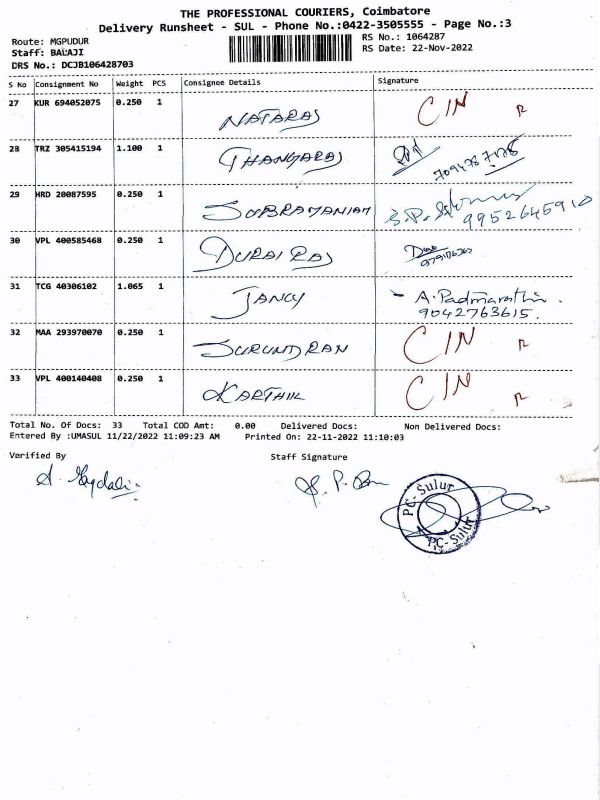 THE PROFESSIONAL COURIERS, Coimbatore
Delivery Runsheet - SUL - Phone No.:0422-3505555 - Page No.:3
Route: MGPUDUR
Staff: BALAJI
DRS No.: DCJB106428703
RS No.: 1064287
RS Date: 22-Nov-2022
S No Consignment No Weight PCS Consignee Details Signature
27 KUR 694052075 0.250 1 NATARAJ CIN R
28 TRZ 305415194 1.100 1 THANGARAJ
29 HRD 20087595 0.250 1 SUBRAMANIAM 9952645910
30 VPL 400585468 0.250 1 DURAI RAJ
31 TCG 40306102 1.065 1 JANCY - A. Padmarathi.
9042763615.
32 MAA 293970070 0.250 1 CIN R
33 VPL 400140408 0.250 1 KARTHIK CIN R
Total No. Of Docs: 33 Total COD Amt: 0.00 Delivered Docs: Non Delivered Docs:
Entered By :UMASUL 11/22/2022 11:09:23 AM Printed On: 22-11-2022 11:10:03
Verified By Staff Signature
PC- Sulur
PC- Sulur